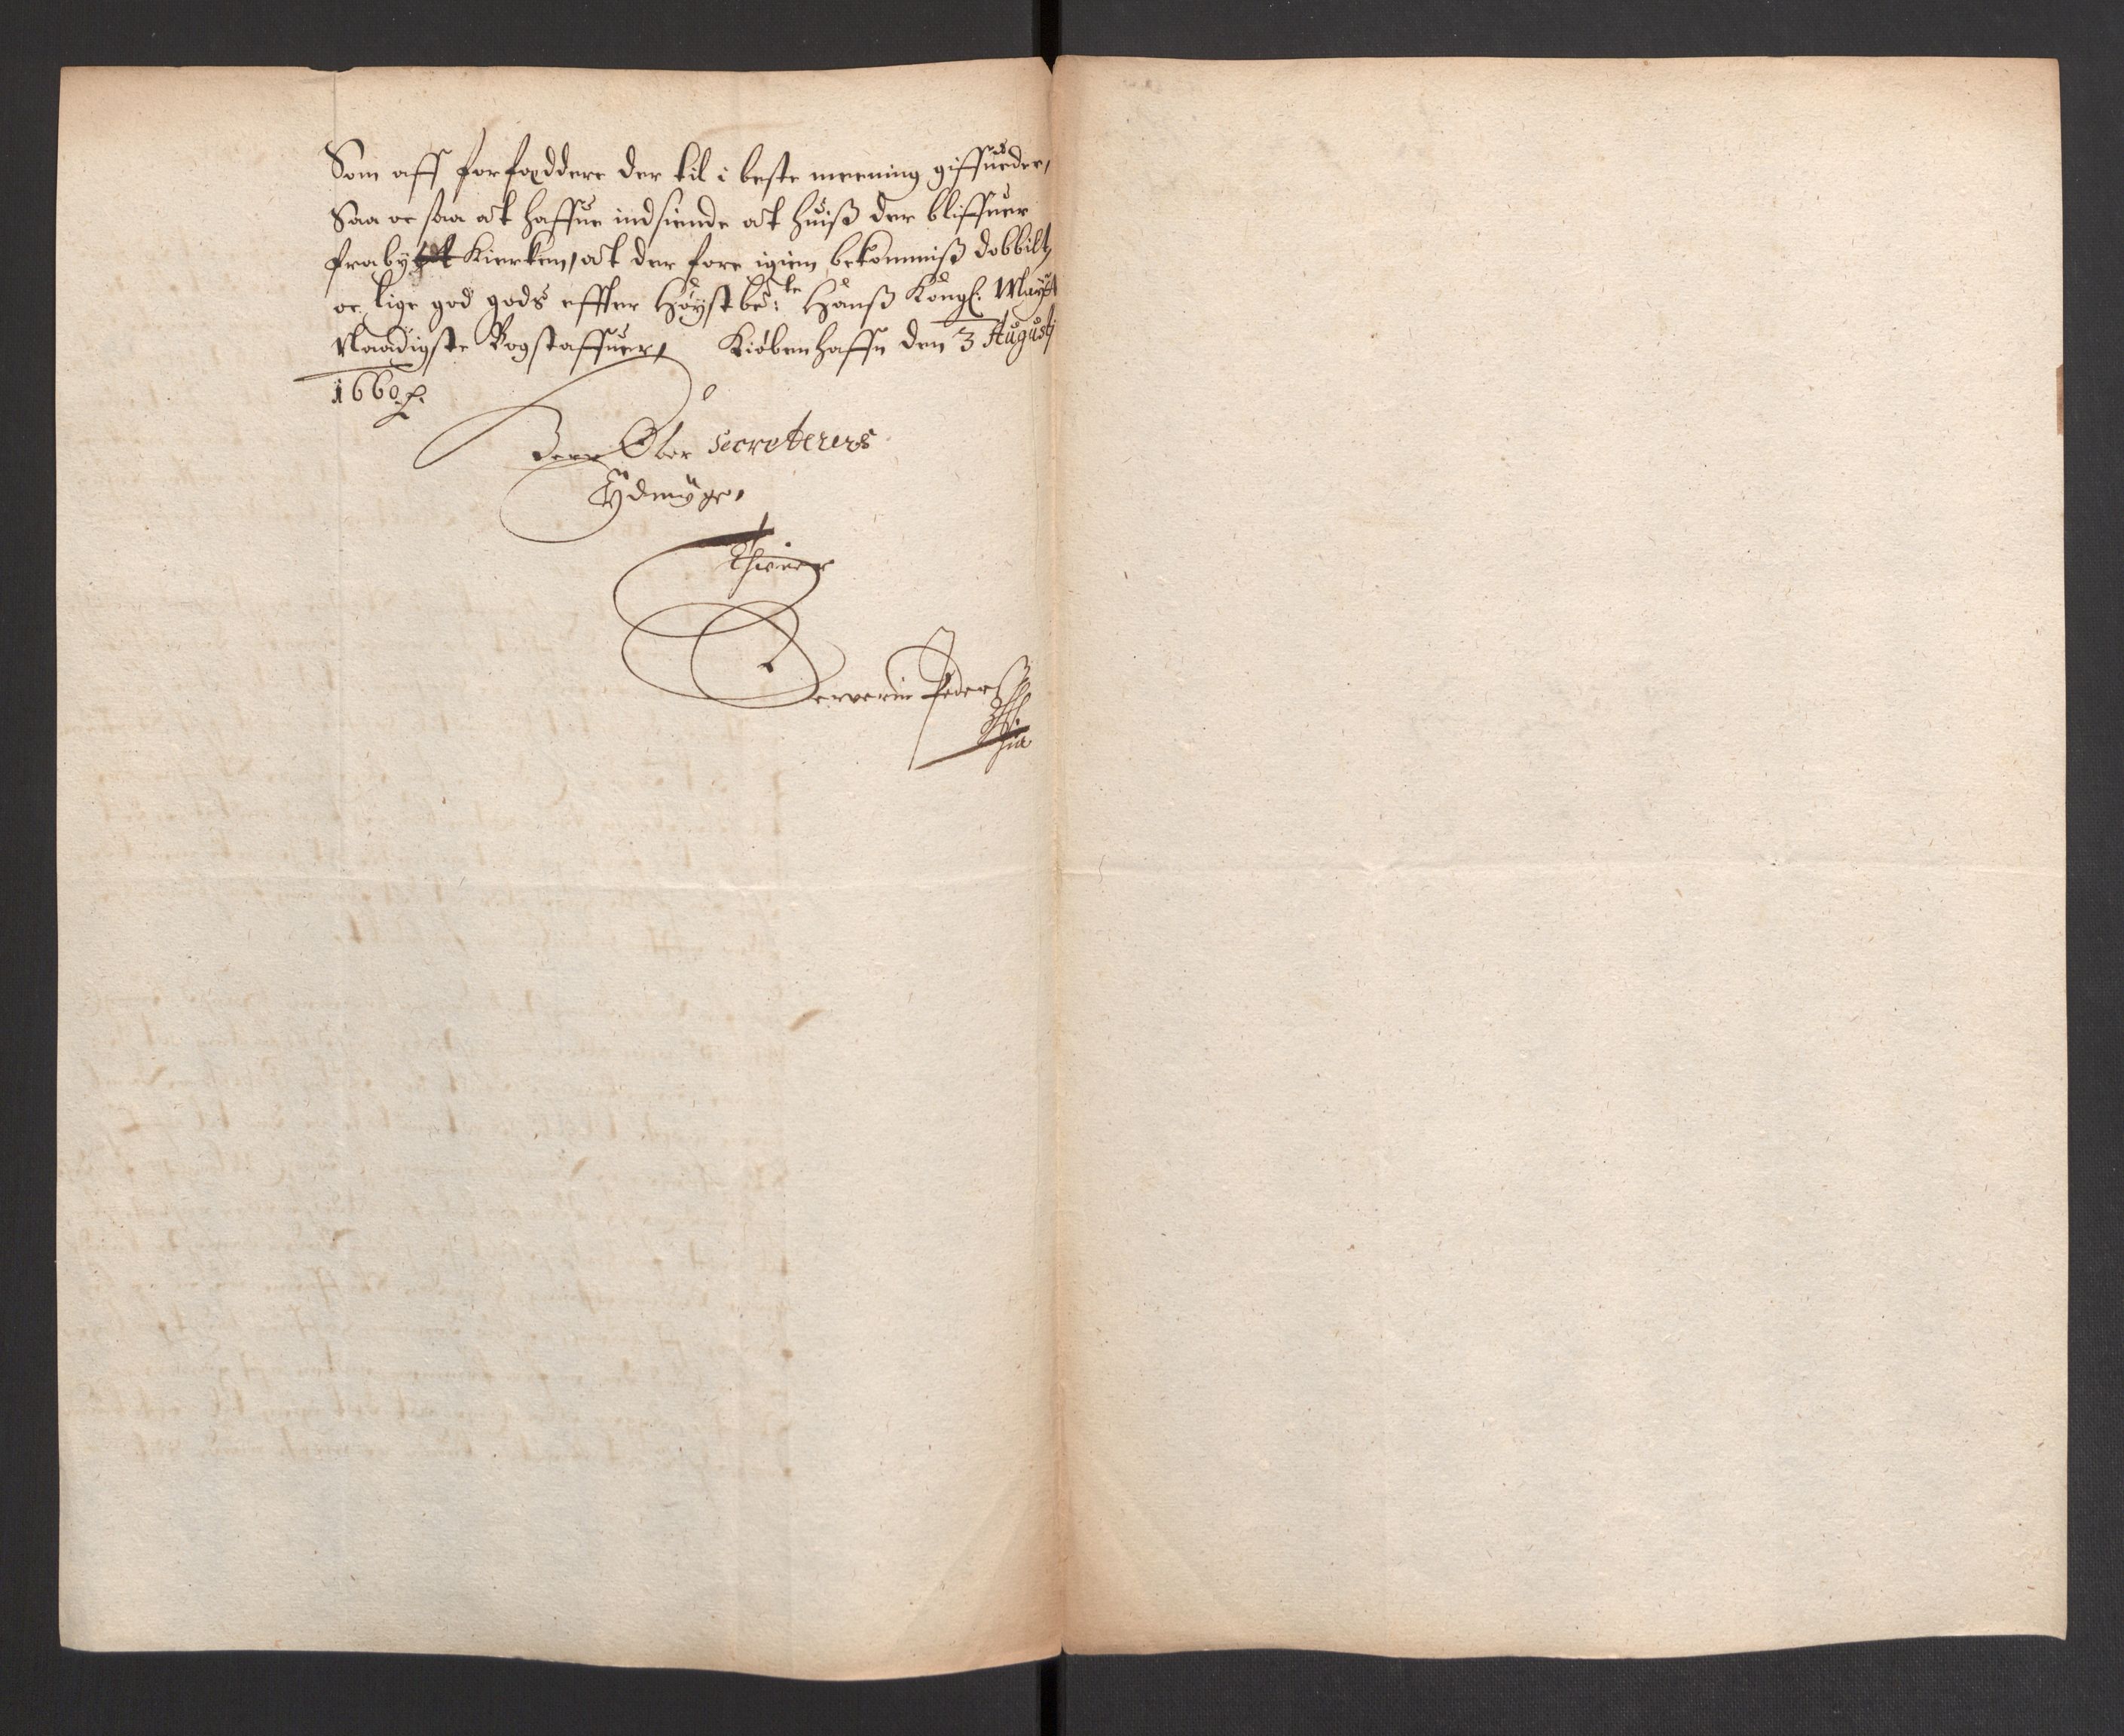 Som aff forfæddere der til i beste meening giffueder,
Saa oc saa at haffue indsiende at huiß der bliffuer
frabytt Kierken, at der fore igien bekommiß dobbilt,
oc lige god gods effter Høystbe:te Hanß Kongl: Mayts
Naadigste Bogstaffuer, Kiøbenhaffn den 3 Augustj
1660
Herr Ober Secreterers
Ydmyge,
Thiener
Serverin Pederß